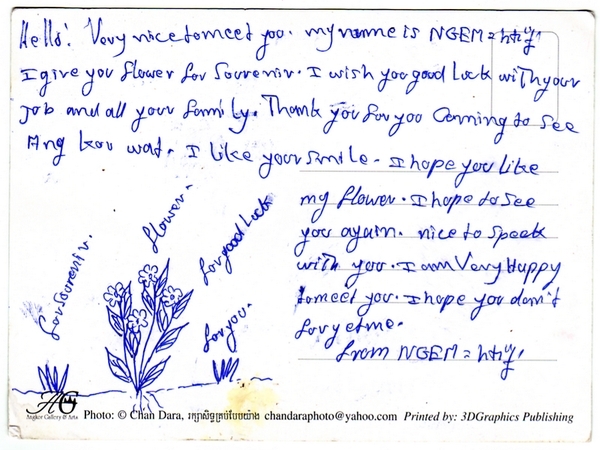 Hello! Very nice to meet you. my name is NGEM =
I give you flower for Souvenir. I wish you good Luck with your
Job and all your family. Thank you for you Comming to See
Ang kor wat. I like your smile. I hope you like
my flower. I hope to see
you again. nice to speak
with you. I am Very Happy
to meet you. I hope you don't
forget me.
from NGEM =
for Souvenir.
flower.
for good Luck
for you.
AG
Angkor Gallery & Arts
Photo: © Chan Dara, រក្សាសិទ្ធគ្រប់បែបយ៉ាង chandaraphoto@yahoo.com Printed by: 3DGraphics Publishing